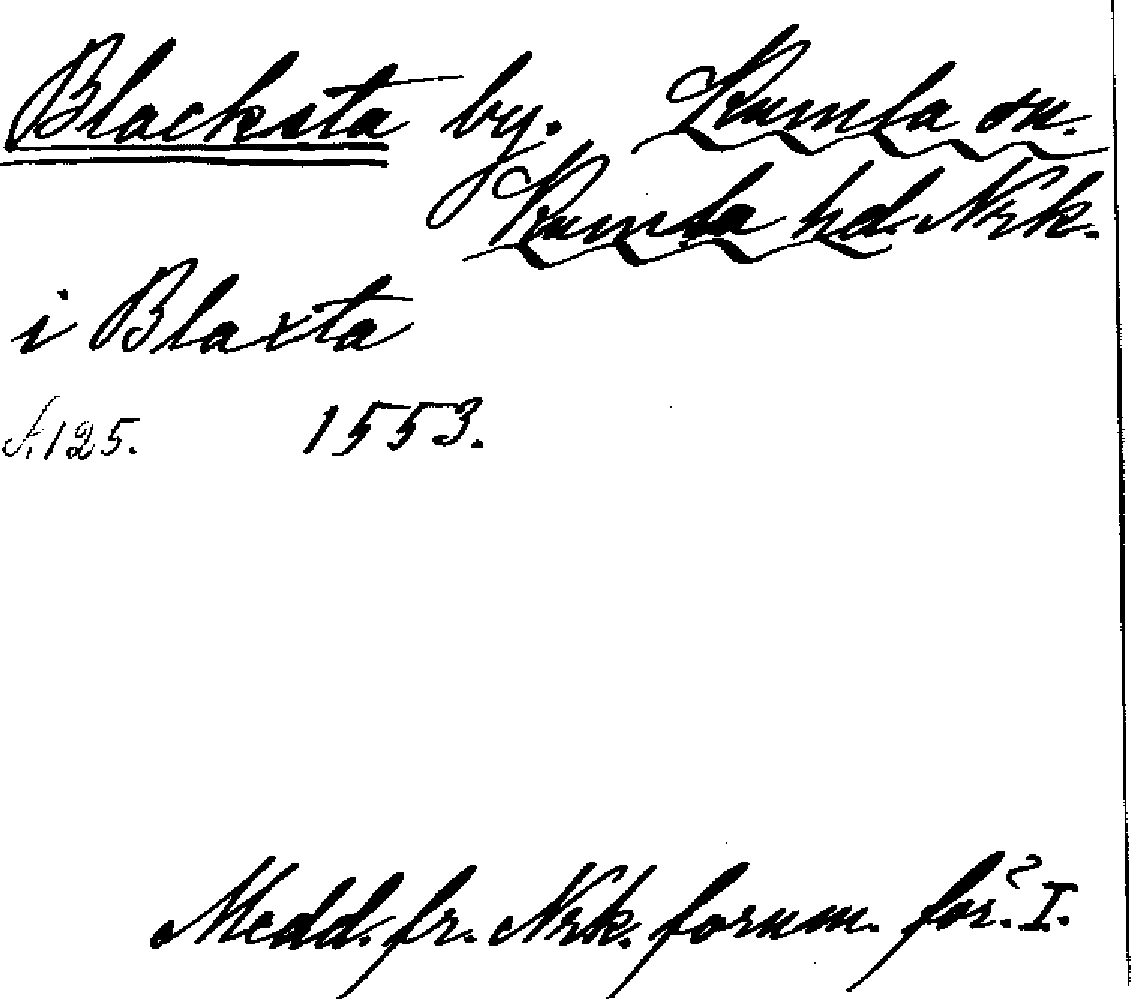 Blacksta by. Kumla sn.
Kumla hd. Nrk.
i Blaxta
s. 125. 1553.
Medd. fr. Nrk. fornm. för. I.